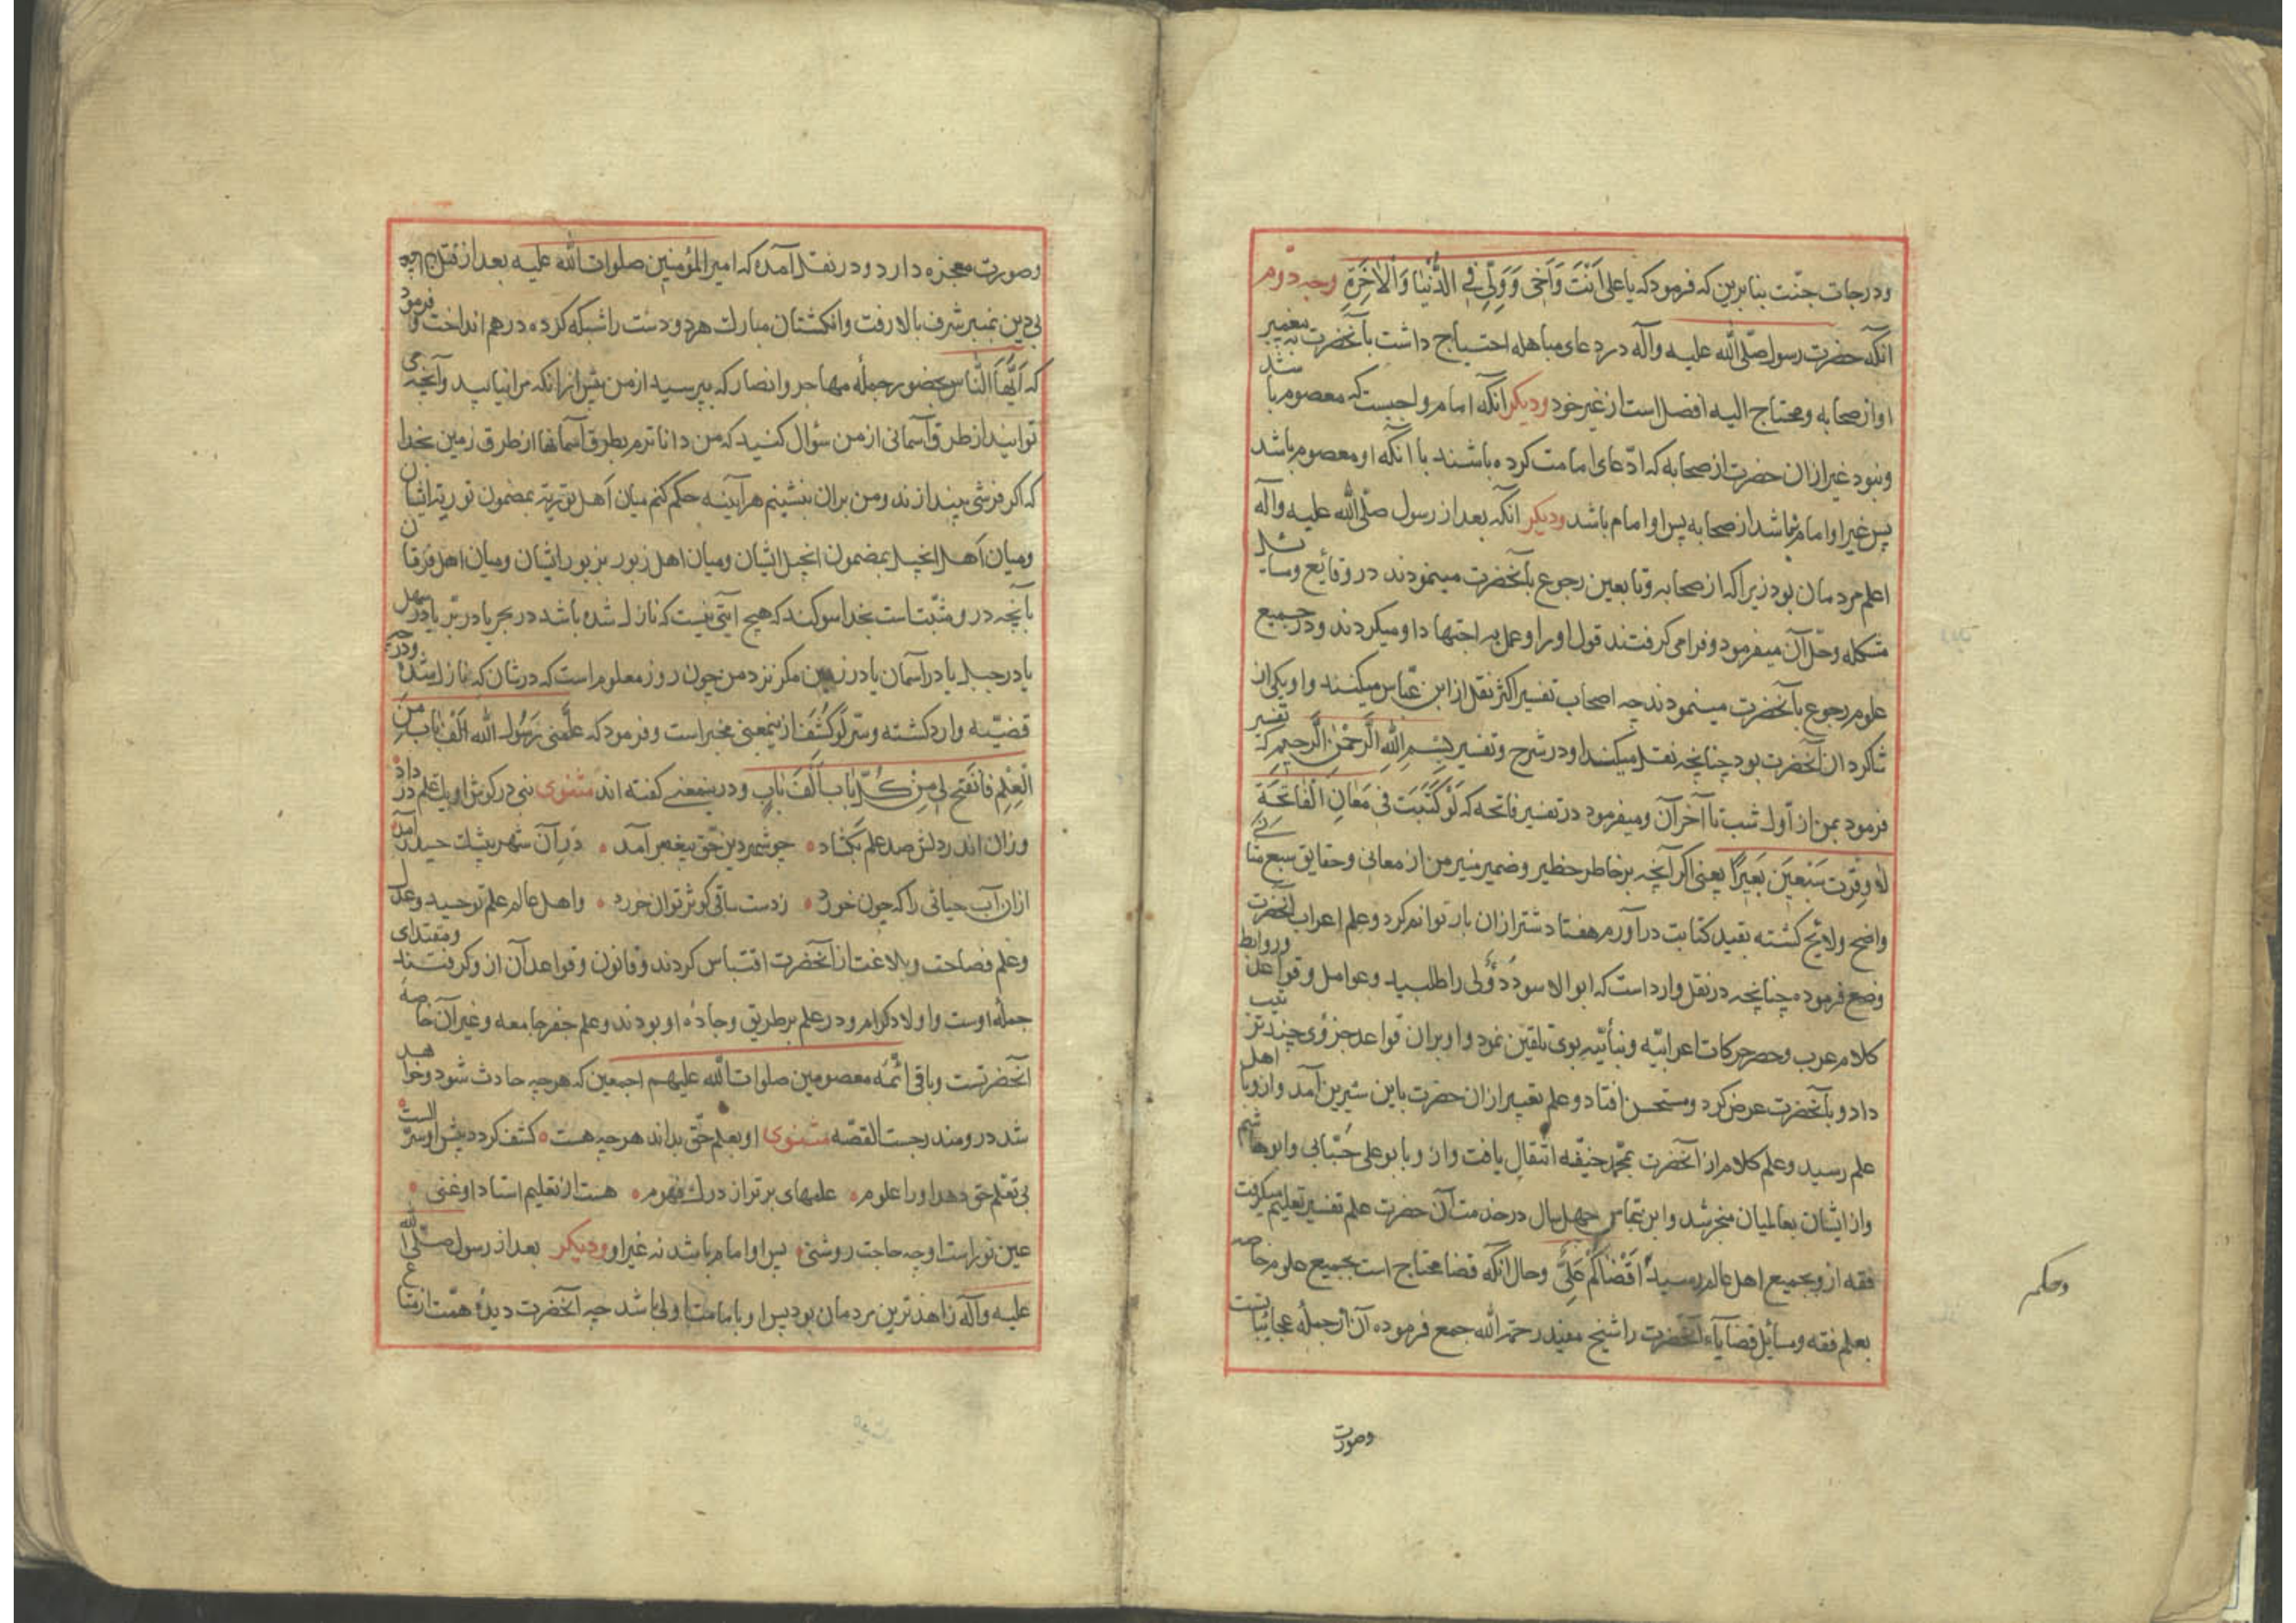 ودرجات جنّت بنابرین که فرمود که یا علی اَنْتَ وَاَخی وَوَلِیّ فِی الدُّنْیٰا وَالْاٰخِرَةِ وجه دوّم
انکه حضرت رسول صلّی الله علیه وآله در دعای مباهله احتیاج داشت بآنحضرت نه بغیر
او از صحابه ومحتاج الیه افضل است از غیر خود ودیکر انکه امام واجبست که معصوم باشد
ونبود غیر ازان حضرت از صحابه که ادّعای امامت کرده باشند با انکه او معصوم باشد
پس غیر او امام نباشد از صحابه پس او امام باشد ودیکر انکه بعد از رسول صلّی الله علیه وآله
اعلم مردمان بود زیرا که از صحابه وتابعین رجوع بآنحضرت مینمودند در وقایع ومسایل
مشکله وحلّ آن میفرمود وفرامی کرفتند قول او را وعمل به اجتهاد او میکردند ودر جمیع
علوم رجوع بآنحضرت مینمودند چه اصحاب تفسیر اکثر نقل از ابن عبّاس میکنند واو یکی از
شاکردان آنحضرت بود چنانچه نقل میکند او در شرح وتفسیر بِسْمِ اللهِ الرَّحْمٰنِ الرَّحیمِ که تفسیر
فرمود بمن از اوّل شب تا آخر آن ومیفرمود در تفسیر فاتحه که لَوْ کَتَبْتَ فی مَعٰانِ الْفٰاتِحَةِ
لاوقرت سَبْعینَ بَعیرًا یعنی اکر آنچه بر خاطر خطیر وضمیر منیر من از معانی وحقایق سبع مثانی
واضح ولایح کشته بقید کتابت در آورم هفتاد شتر ازان بار توانم کرد وعلم اعراب آنحضرت
وضع فرموده چنانچه در نقل وارد است که ابو الاسود دؤلی را طلبید وعوامل وقواعد وروابط
کلام عرب وحصر حرکات اعرابیّه وبنأییه بوی تلقین نمود واو بران قواعد جزوی چند ترتیب
داد وبآنحضرت عرض کرد ومستحسن افتاد وعلم تعبیر ازان حضرت باین سیرین آمد وازو باهل
علم رسید وعلم کلام از آنحضرت بمحمّد حنیفه انتقال یافت واز و بابو علی جبّایی وابوهاشم
واز ایشان بعالمیان منجر شد وابن عبّاس چهل سال در خدمت آن حضرت علم تفسیر تعلیم میکرفت
فقه ازو بجمیع اهل عالم رسید اَقْضٰاکُمْ عَلِیٌّ وحال انکه قضا محتاج است بجمیع علوم خاصه
بعلم فقه ومسائل قضایاء آنحضرت را شیخ مفید رحمه الله جمع فرموده آن از جملهٔ عجائباتست
وحکم
وصورت
وصورت معجزه دارد ودر نقل آمده که امیر المؤمنین صلوات الله علیه بعد از قتل
بی دین بمنبر شرف بالا رفت وانکشتان مبارک هر دو دست را شبکه کرده درهم انداخت وفرمود
که اَیُّهَا النّاس بحضور جملهٔ مهاجر وانصار که بپرسید از من پیش از انکه مرا نیابید وآنچه می
توانید از طرق آسمانی از من سؤال کنید که من داناترم بطرق آسمانها از طرق زمین بخدا
که اکر فرشی بیندازند ومن بران بنشینم هر آینه حکم کنم میان اَهل توریة بمضمون توریة ایشان
ومیان اَهل انجیل بمضمون انجیل ایشان ومیان اهل زبور بزبور ایشان ومیان اهل فرقان
بآنچه در و مثبّت است بخدا سوکند که هیچ آیتی نیست که نازل شده باشد در بحر یا در بّر یا در سهل
یا در جبل یا در آسمان یا در زمین مکر نزد من چون روز معلوم است که در شان که نازل شده ودر چه
قضیّه وارد کشته وسّر لَوْ کُشِفَ از ینمعنی مخبر است وفرمود که علّمنی رَسُول الله اَلْفَ بٰابٍ مِنَ
الْعِلْمِ فَانفتح لی مِنْ کُلّ بٰاب اَلْفَ بٰابٍ ودر ینمعنی کفته اند مثنوی نبی در کوش او یک علم در داد
وزان اندر دلش صد علم بکشاد • چو شهر دین حق پیغمبر آمد • در آن شهر بیشک حیدر آمد
ازان آب حیاتی را که چون خورد • زدست ساقی کوثر توان خورد • واهل عالم علم توحید وعدل
وعلم فصاحت وبلاغت از آنحضرت اقتباس کردند وقانون وقواعد آن ازو کرفتند ومقتدای
جمله اوست واولاد کرام ودر علم بر طریق وجادهٔ او بودند وعلم جفر جامعه وغیر آن خاصهٔ
آنحضرتست وباقی ائمّه معصومین صلوات الله علیهم اجمعین که هر چه حادث شود وخواهد
شد در و مندرجست القصّه مثنوی او بعلم حقّ بداند هر چه هست • کشف کردد پیش او سرّ الست
بی تعلم حق دهد او را علوم • علمهای برتر از درک فهوم • هست از تعلیم استاد او غنی •
عین نور است او چه حاجت روشنی • پس او امام باشد نه غیر او ودیکر بعد از رسول صلّی الله
علیه وآله زاهدترین مردمان بود پس او بامامت اولی باشد چه آنحضرت دیدهٔ همّت از متاع